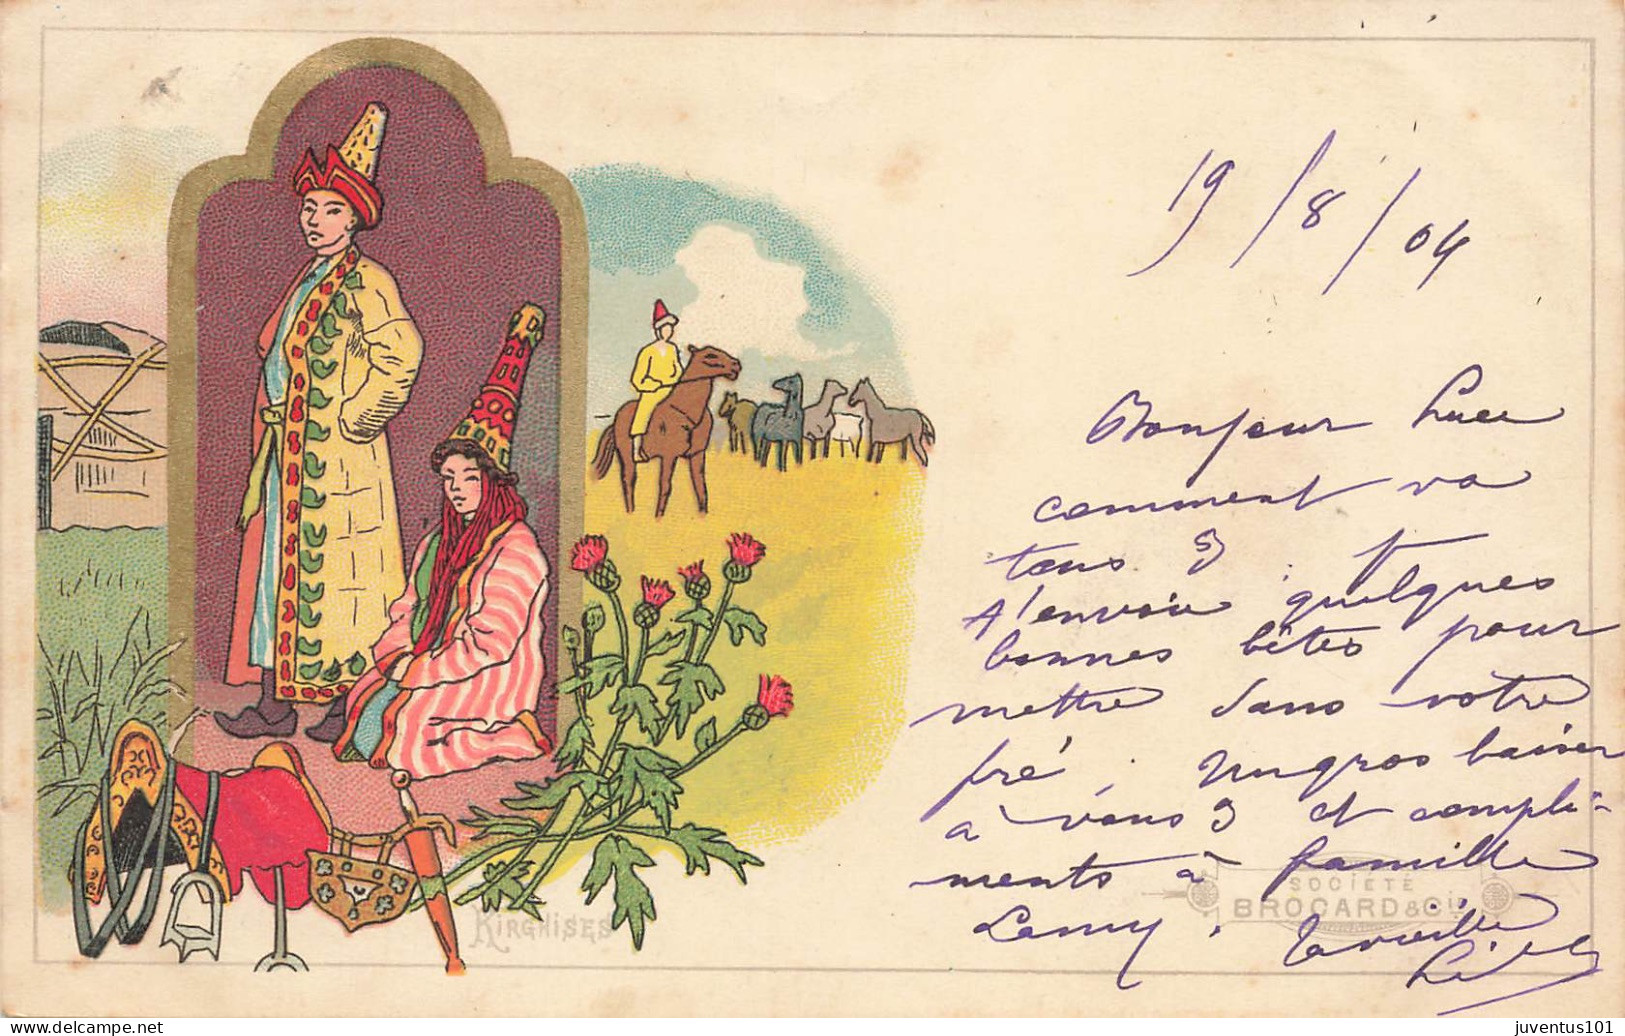 19/8/04
Bonjour Luce
comment va
tous 3 J
t'envoie quelques
bonnes bêtes pour
mettre dans votre
pré. Un gros baiser
à vous 3 et compli-
ments à famille
Lamy. Ta vieille
KIRGHISES
SOCIÉTÉ
BROCARD & Cie
www.delcampe.net
juventus101